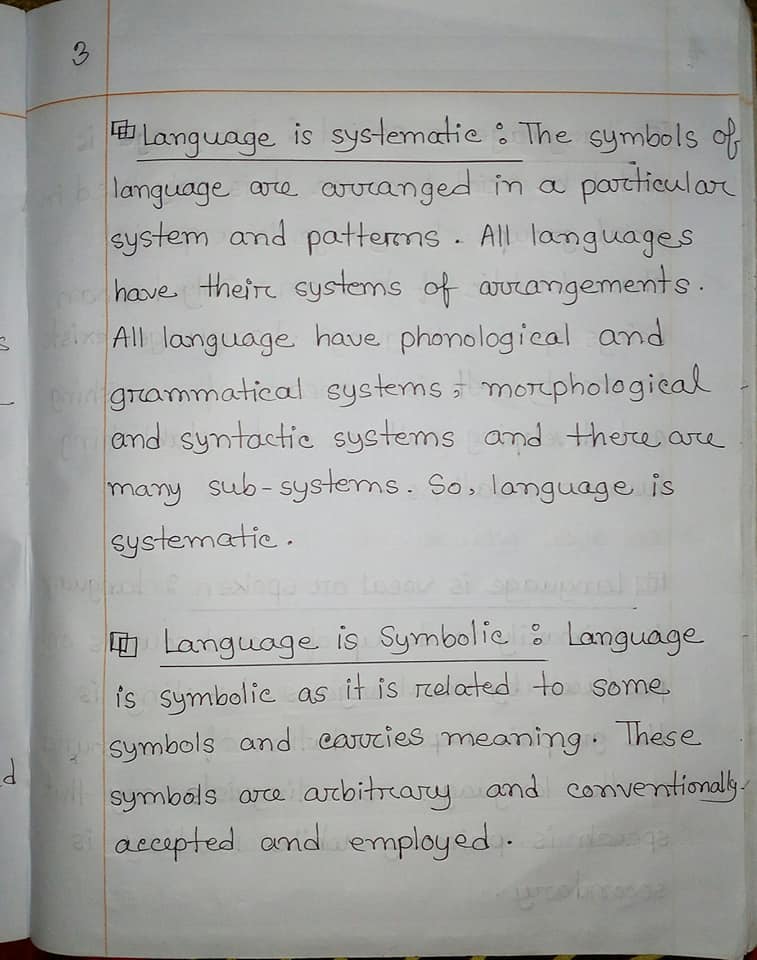 3
Language is systematic : The symbols of
language are arranged in a particular
system and patterns. All languages
have their systems of arrangements.
All language have phonological and
grammatical systems, morphological
and syntactic systems and there are
many sub-systems. So, language is
systematic.
Language is Symbolic : Language
is symbolic as it is related to some
symbols and carries meaning. These
symbols are arbitrary and conventionally
accepted and employed.